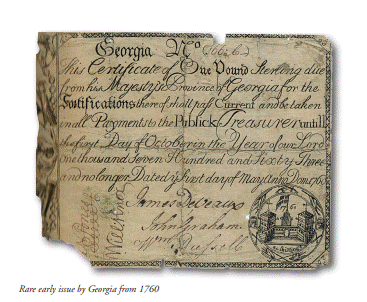 Georgia No
This Certificate of One Pound Sterling due
from his Majesty's Province of Georgia for the
Fortifications thereof shall pass Current and be taken
in all Payments to the Publick Treasurer untill
the first Day of October in the Year of our Lord
One thousand Seven Hundred and Sixty Three
and no longer Dated ye First day of May Anno Dom 1760
James DeVeaux
John Graham
Wm Russell
Rare early issue by Georgia from 1760